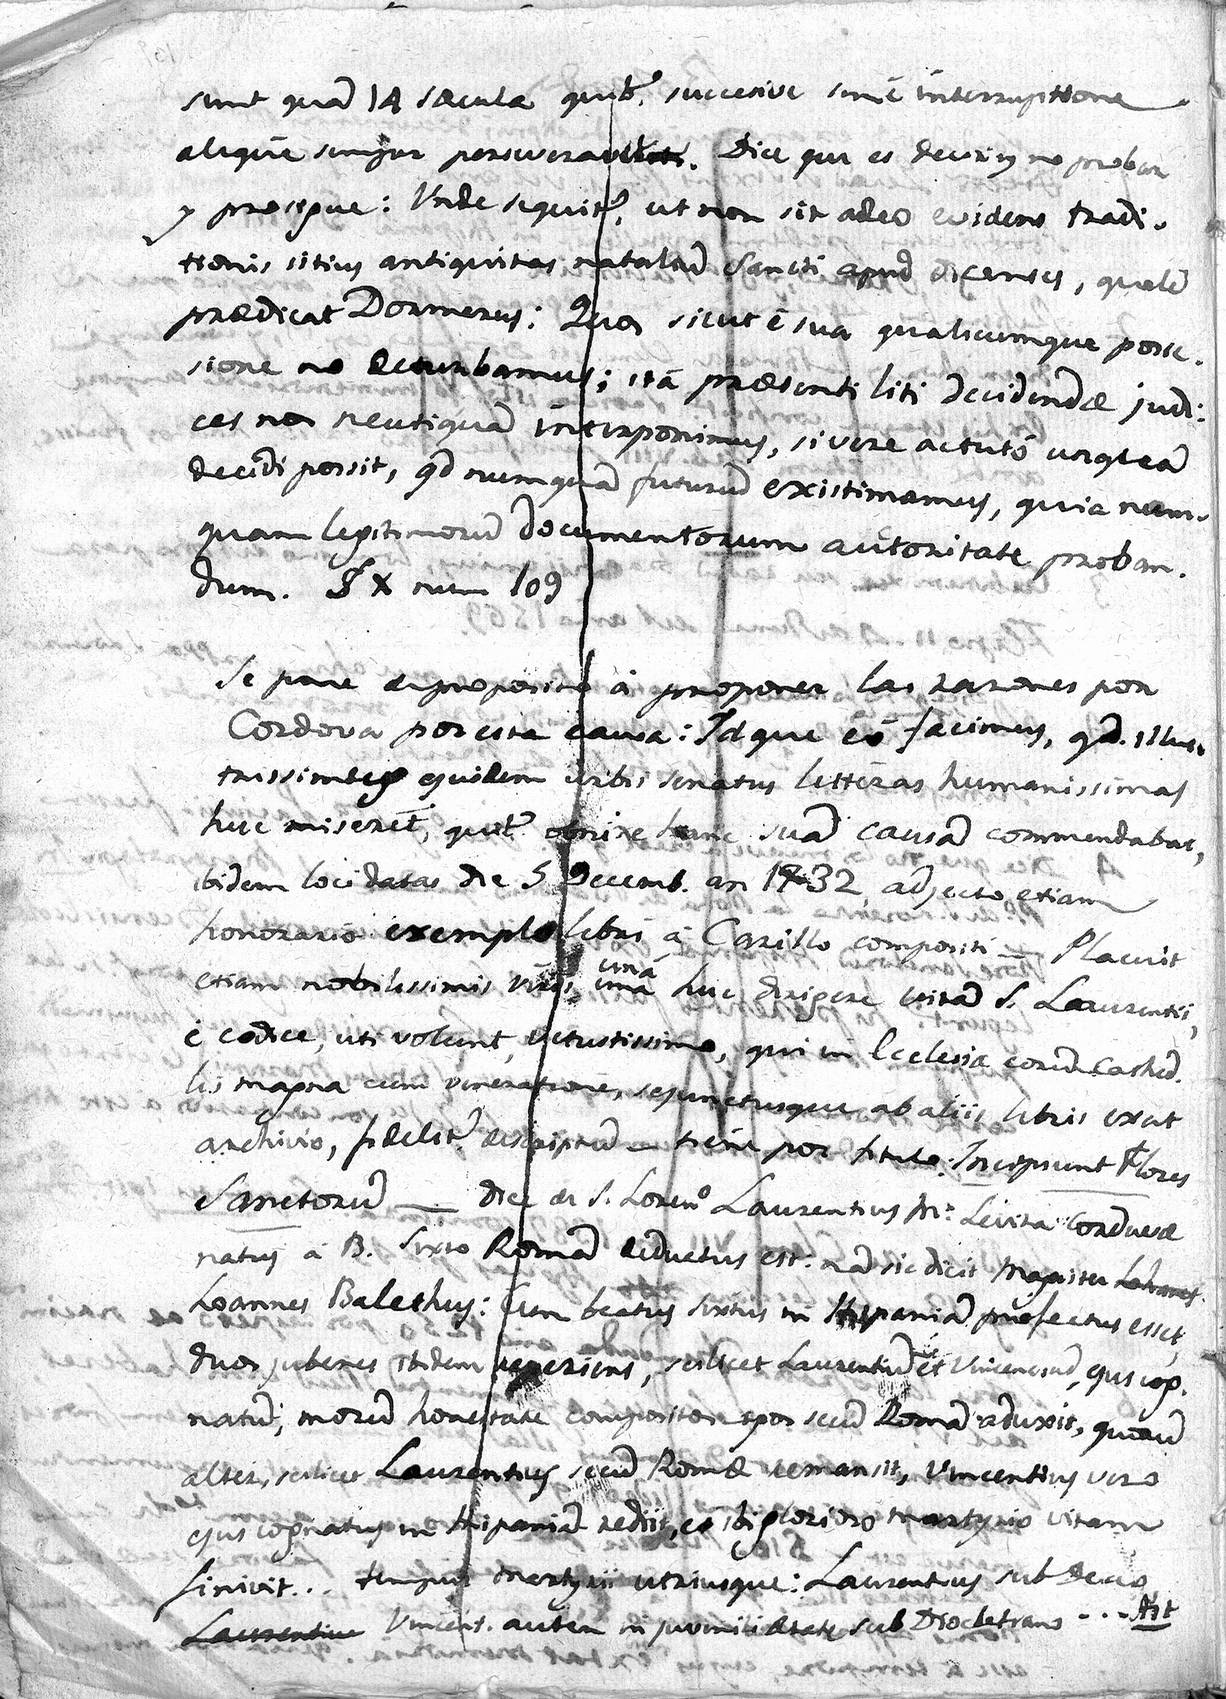 sunt quã 14 sæcula quib.ˢ succesive sinẽ ĩnterruptione
aliquẽ semper perseveravit. Dice que es decir y no probar
y prosigue: Unde sequitʳ, ut non sit adeo evidens tradi-
tionis istius antiquitas natalium Sancti apud Oscenses, qualẽ
prædicat Dormerus: Quos sicut è sua qualicumque posse-
sione nõ deturbamus; ità præsenti liti decidendæ judi-
ces nos neutiquã ĩnterponimus, si vere actutũ usquã
decidi possit, qd numquã futurũ existimamus, quia num-
quam legitimorũ documentorum autoritate proban-
dum. § X num 109
Se pone de proposito à proponer las razones por
Cordova por esta causa: Idque eò facimus, qd. illus-
trissimus ejusdem urbis senatus litteras humanissimas
huc miserit, quib.ˢ enixe hanc suã causã commendabat,
ibidem loci datas die 5 Decemb. an 1732, adjecto etiam
honorario exemplo libri à Carillo compositi — Placuit
etiam nobilissimis viris unà huc dirigere vitã S. Laurentii,
è codice, uti volunt, vetustissimo, qui in Ecclesia eorũ Cathed.
lis magna cum veneratione, sejunctusque ab aliis libris extat
archivio, fidelitʳ descriptã — tiene por titulo: Incipiunt Flores
Sanctorũ — dice de S. Lorenº Laurentius Mʳ Levita Corduvæ
natus à B. Sixto Romã deductus est: nã sic dicit Magister
Loannes Balethus: Cum beatus Sixtus in Hispaniã profectus esset,
duos jubenes ibidem reperiens, scilicet Laurentiũ et Vincenciũ, ejus cog-
natũ, morũ honestate compositos ipsos secũ Romã aduxit, quorũ
alter, scilicet Laurentius secũ Romæ remansit, Vincentius vero
ejus cognatus in Hispaniã rediit, et ibi glorioso martyrio vitam
finivit... tempus martyrii utriusque: Laurentius sub Decio,
Laurentius Vincent. autem in juvenili ætate sub Diocletiano ... Ait